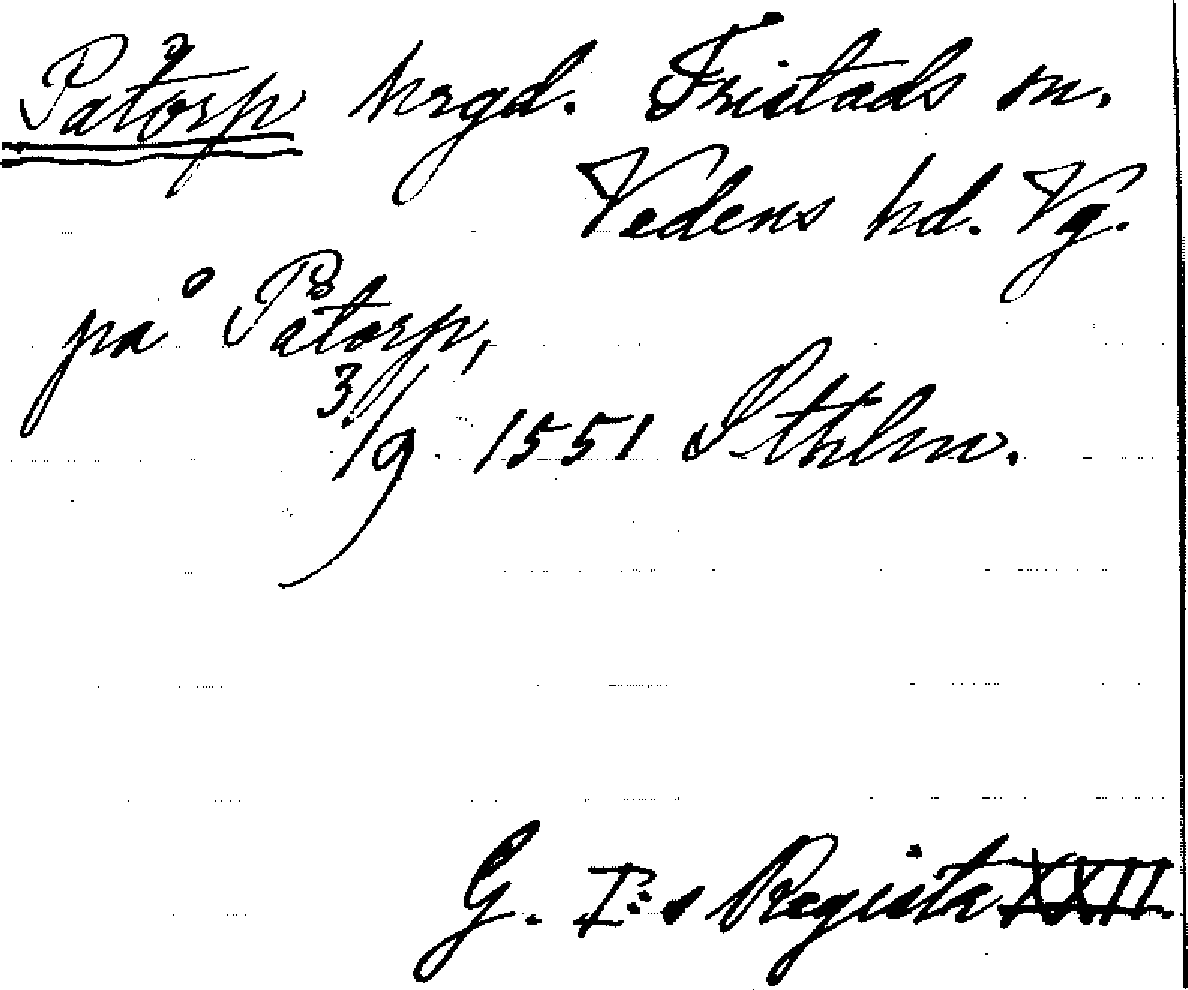 Påtorp hrgd. Fristads sn.
Vedens hd. Vg.
på Påtorp,
3/9 1551 Sthlm.
G. I:s Registr. XXII.